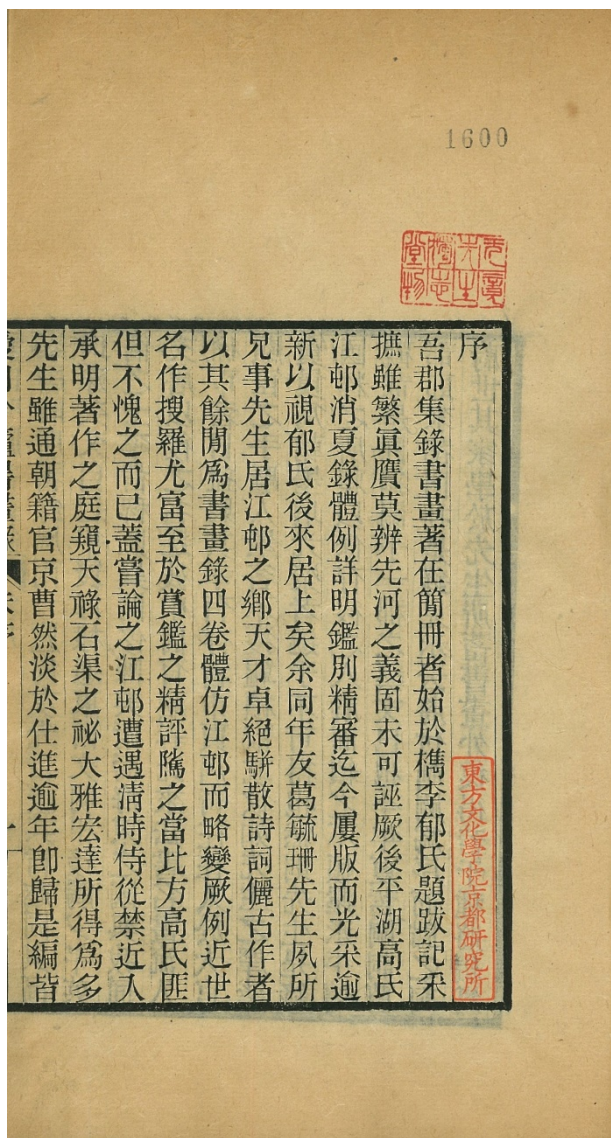 1600
无竟先生獨志堂物
序
東方文化學院京都研究所
吾郡集錄書畫著在簡冊者始於檇李郁氏題跋記采
摭雖繁眞贋莫辨先河之義固未可誣厥後平湖高氏
江邨消夏錄體例詳明鑑別精審迄今屢版而光采逾
新以視郁氏後來居上矣余同年友葛毓珊先生夙所
兄事先生居江邨之鄉天才卓絕駢散詩詞儷古作者
以其餘閒爲書畫錄四卷體仿江邨而略變厥例近世
名作搜羅尤富至於賞鑑之精評隲之當比方高氏匪
但不愧之而已蓋嘗論之江邨遭遇淸時侍從禁近入
承明著作之庭窺天祿石渠之祕大雅宏達所得爲多
先生雖通朝籍官京曹然淡於仕進逾年卽歸是編皆